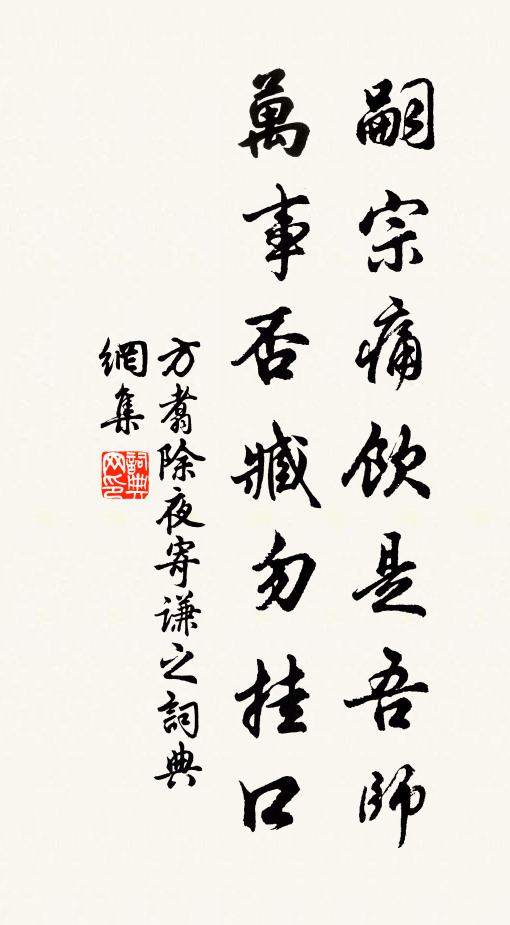 嗣宗痛飲是吾師
萬事否臧勿挂口
方翥除夜寄謙之詞典
網集
詞典網印